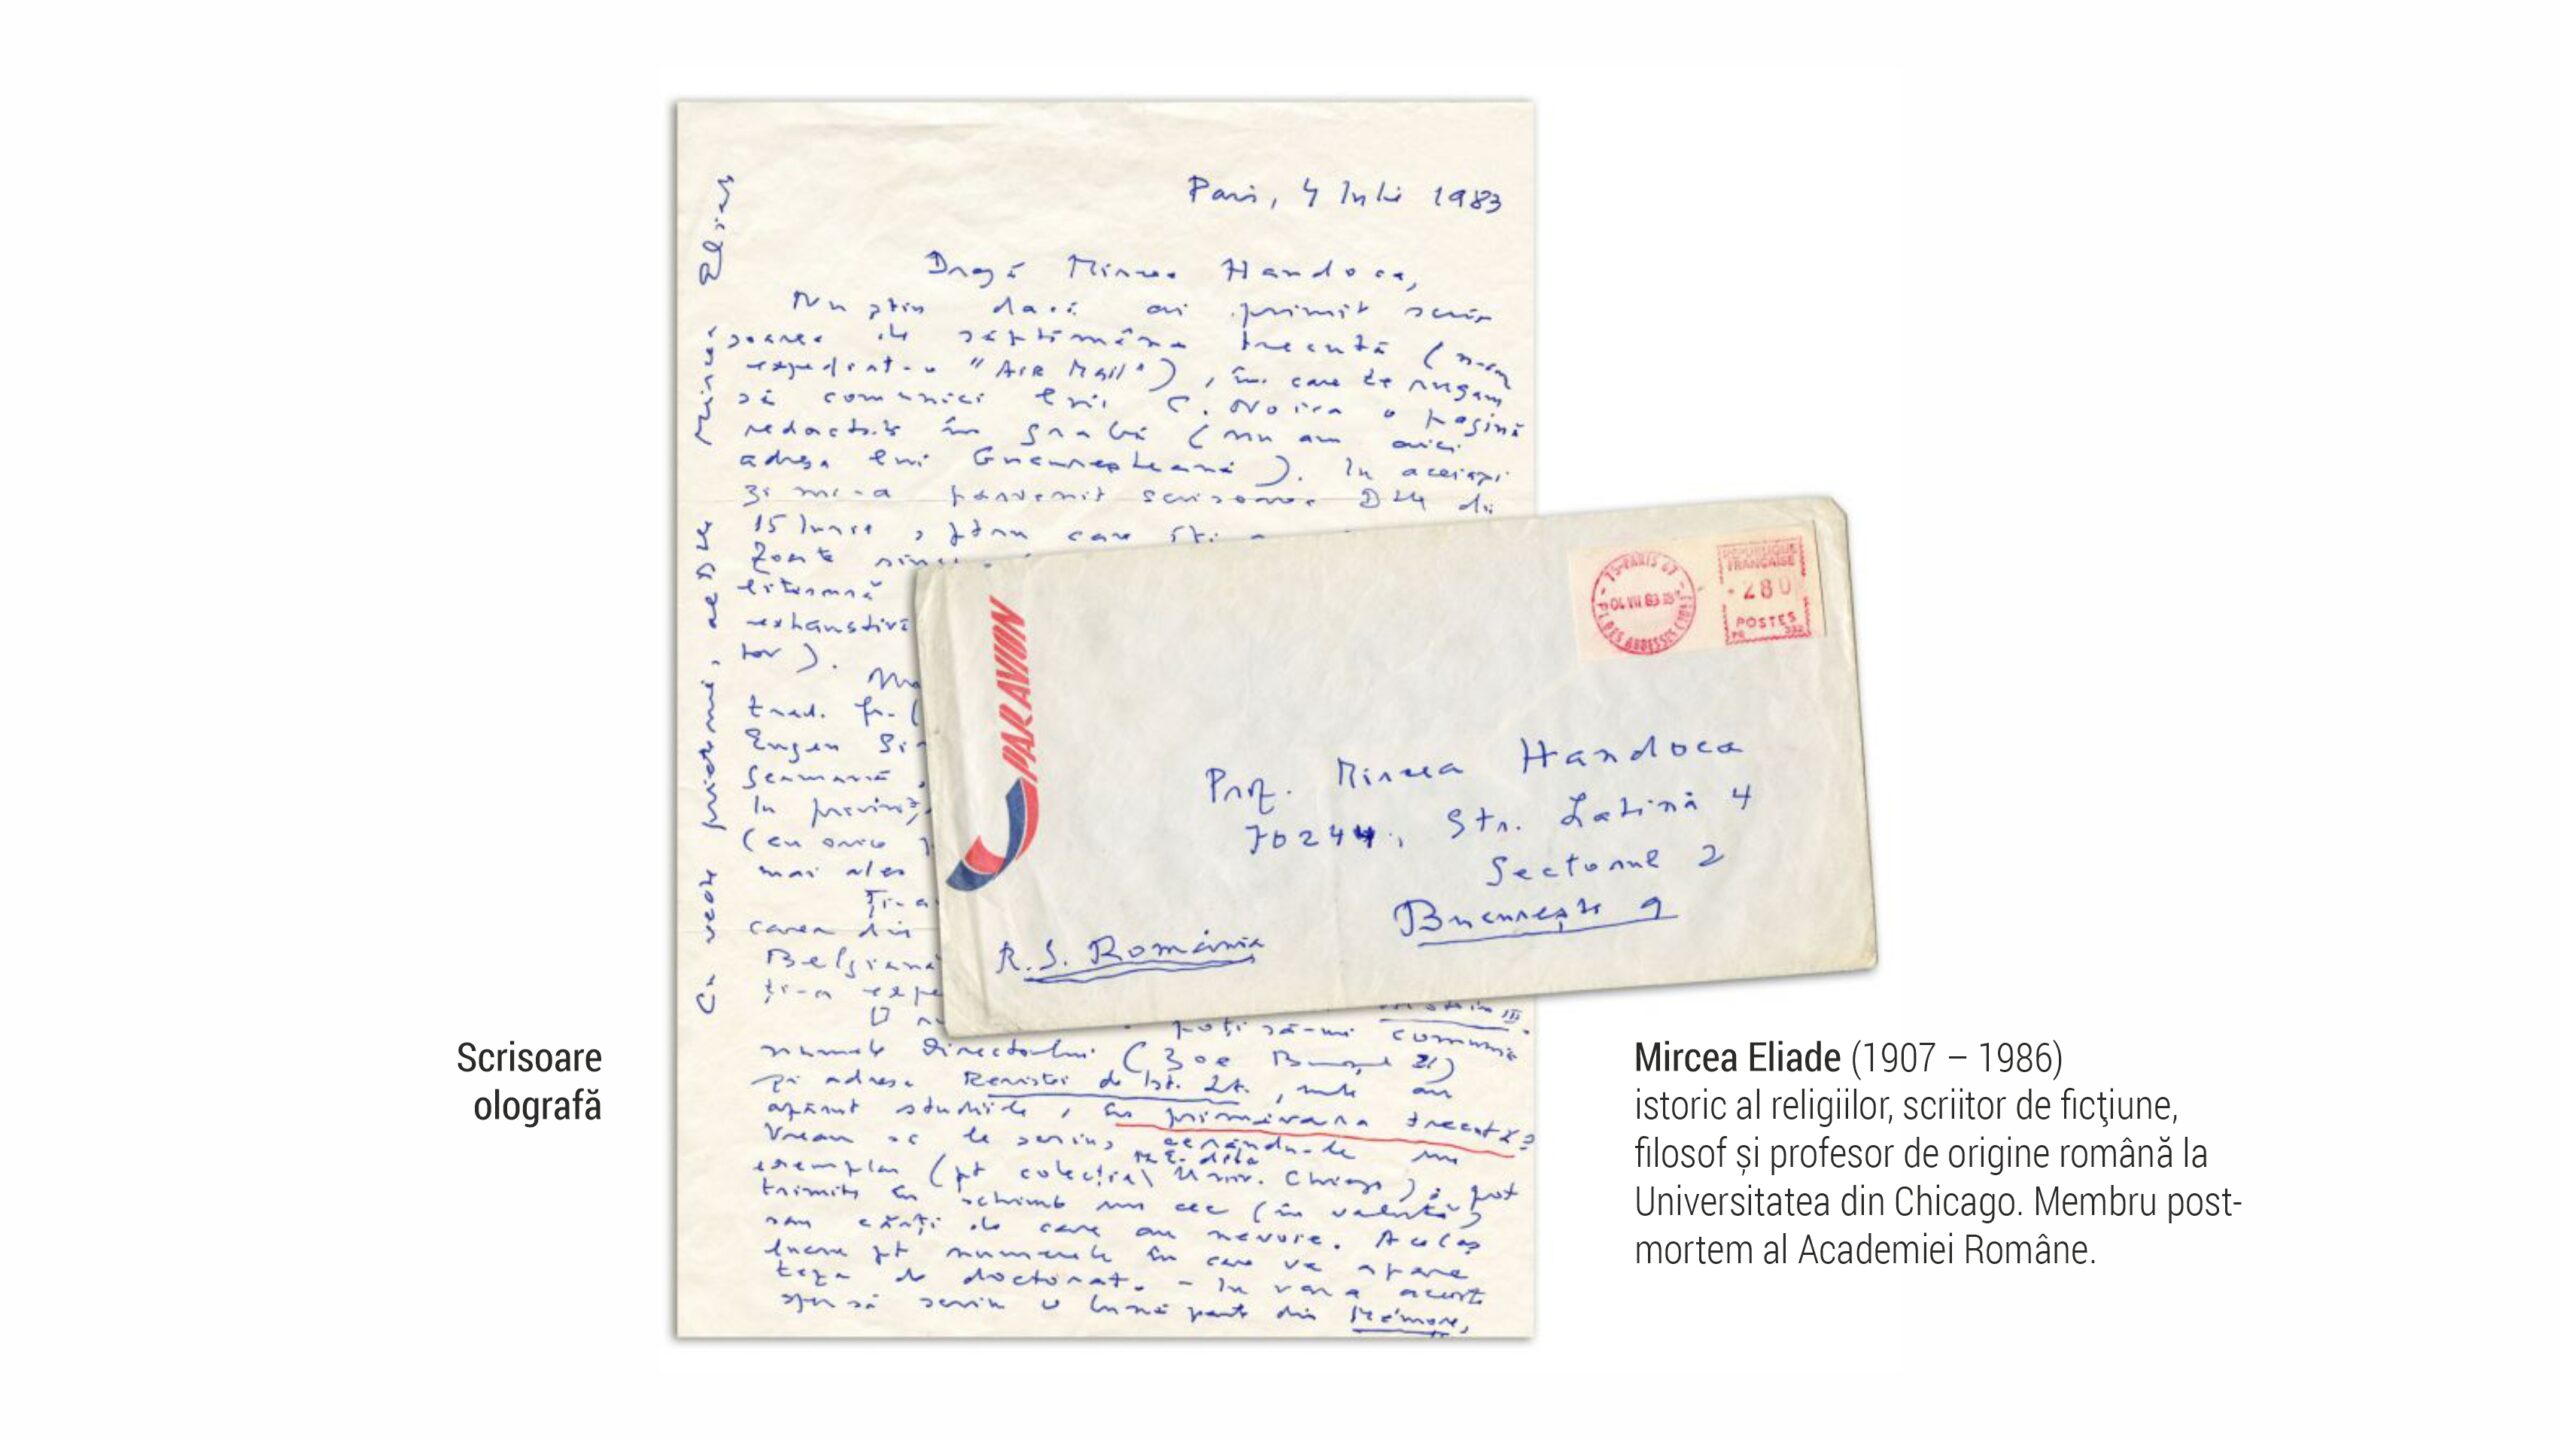 Paris, 4 Iulie 1983
Dragă Mircea Handoca,
Nu știu dacă ai primit scri-
soarea de săptămâna trecută (n-am
expediat-o "AIR Mail"), în care te rugam
să comunici lui C. Noica o pagină
redactată în grabă (nu am aici
adresa lui Gucureșteanu). In aceiași
zi mi-a parvenit scrisoarea D tale din
15 Iunie, pentru care îți
foarte
literară
exhaustivă
tor).
trad. fr. (
Eugen Si
Germană,
In provinț
(cu orice
mai ales
Ți-a
carea din
Belgiană
ți-a expe
poți să-mi comunici
numele Directorului (Zoe
și adresa Revistei de Ist. Lit., unde au
apărut studiile, în primăvara trecută?
Vreau să le scriu, cerându-le un
exemplar (pt colecția M.E. dela Univ. Chicago); pot
trimite în schimb un cec (în valută)
sau cărți de care au nevoie. Acelaș
lucru pt numerele în care va apare
teza de doctorat. - In vara aceasta
sper să scriu o bună parte din Mémoire,
Cu vechi prietenie, al D tale
Mircea Eliade
PAR AVION
75-PARIS 67
04 VII 83
PL. DES ABBESSES (18E)
REPUBLIQUE
FRANCAISE
280
POSTES
Prof. Mircea Handoca
70244, Str. Latină 4
Sectorul 2
București 9
R.S. România
Scrisoare
olografă
Mircea Eliade (1907 – 1986)
istoric al religiilor, scriitor de ficţiune,
filosof și profesor de origine română la
Universitatea din Chicago. Membru post-
mortem al Academiei Române.